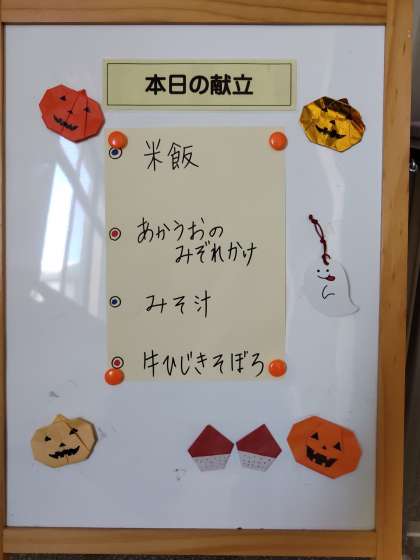 本日の献立
米飯
あかうおの
みぞれかけ
みそ汁
牛ひじきそぼろ